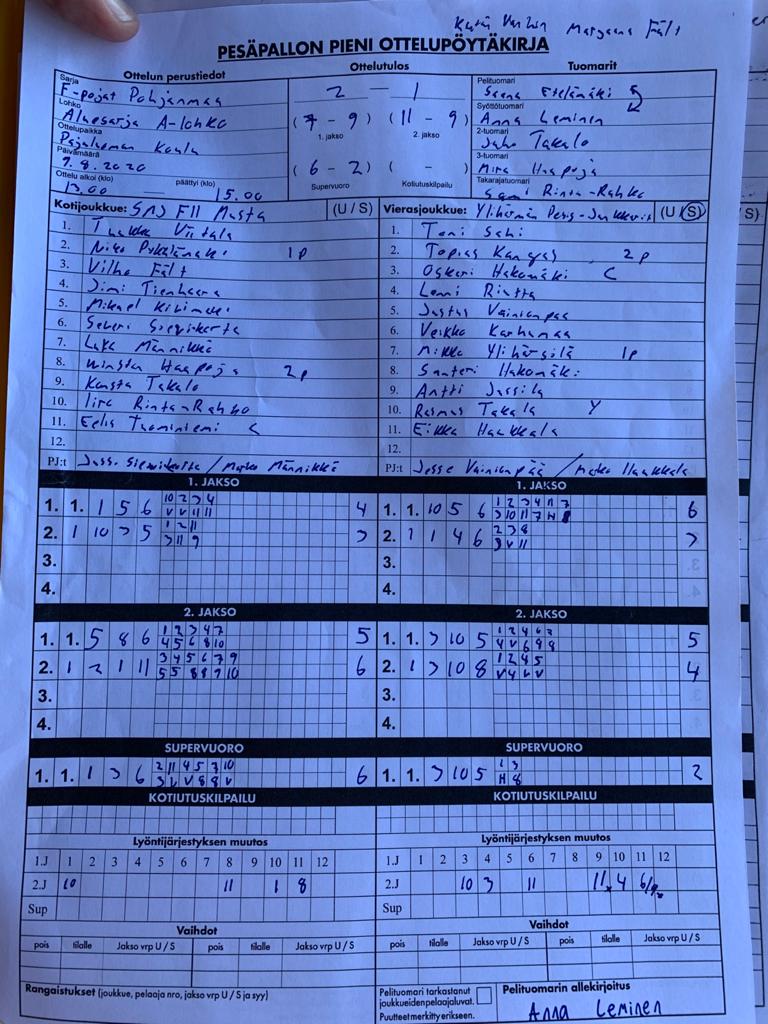 Marjaana Fält
PESÄPALLON PIENI OTTELUPÖYTÄKIRJA
Ottelun perustiedot Ottelutulos Tuomarit
Sarja
F-pojat Pohjanmaa
Lohko
Aluesarja A-lohko
Ottelupaikka
Pajuluoman Koulu
Päivämäärä
9.8.2020
Ottelu alkoi (klo) päättyi (klo)
13.00 15.00
2 — 1
(7 - 9) (11 - 9)
1. jakso 2. jakso
(6 - 2) ( - )
Supervuoro Kotiutuskilpailu
Pelituomari
Saana Etelämäki
Syöttötuomari
Anna Leminen
2-tuomari
Juho Takalo
3-tuomari
Mira Haapoja
Takarajatuomari
Sami Rinta-Rahko
Kotijoukkue: SMJ F11 Musta (U / S)
1. Tuukka Viitala
2. Niilo Pykälämäki 1p
3. Vilho Fält
4. Jimi Tienhaara
5. Mikael Kivimäki
6. Severi
7. Luka Männikkö
8. Winston Haapoja 2p
9. Konsta Takalo
10. Iiro Rinta-Rahko
11. Eelis Tuominiemi C
12.
PJ:t Jussi / Marko Männikkö
Vierasjoukkue: Ylihärmän Pesis-Junkkarit (U / S)
1. Toni Sahi
2. Topias Kangas 2p
3. Oskari Hakomäki C
4. Lenni Rintta
5. Justus Vainionpää
6. Veikko Karhumaa
7. Mikko Ylihärsilä 1p
8. Santeri Hakomäki
9. Antti Jussila
10. Rasmus Takala Y
11. Eikka Haukkala
12.
PJ:t Jesse Vainionpää / Marko Haukkala
1. JAKSO 1. JAKSO
1. 1. 1 5 6 10 2 3 4 4
V V 11 11
2. 1 10 3 5 1 2 11 3
3 11 9
3.
4.
1. 1. 10 5 6 1 2 3 4 11 7 6
3 10 11 7 H 8
2. 1 1 4 6 2 3 8 3
3 V 11
3.
4.
2. JAKSO 2. JAKSO
1. 1. 5 8 6 1 2 3 4 7 5
4 5 6 8 10
2. 1 2 1 11 3 4 5 6 7 9 6
5 5 8 8 9 10
3.
4.
1. 1. 3 10 5 1 2 4 6 7 5
4 V 6 9 8
2. 1 3 10 8 1 2 4 5 4
V 4 V V
3.
4.
SUPERVUORO SUPERVUORO
1. 1. 1 3 6 2 11 4 5 7 10 6
3 V V 8 8 V
1. 1. 3 10 5 1 3 2
H 8
KOTIUTUSKILPAILU KOTIUTUSKILPAILU
Lyöntijärjestyksen muutos
1.J 1 2 3 4 5 6 7 8 9 10 11 12
2.J 10 11 1 8
Sup
Lyöntijärjestyksen muutos
1.J 1 2 3 4 5 6 7 8 9 10 11 12
2.J 10 3 11 11 4
Sup
Vaihdot Vaihdot
pois tilalle Jakso vrp U / S pois tilalle Jakso vrp U / S
pois tilalle Jakso vrp U / S pois tilalle Jakso vrp U / S
Rangaistukset (joukkue, pelaaja nro, jakso vrp U / S ja syy)
Pelituomari tarkastanut
joukkueiden pelaajaluvat.
Puutteet merkitty erikseen.
Pelituomarin allekirjoitus
Anna Leminen